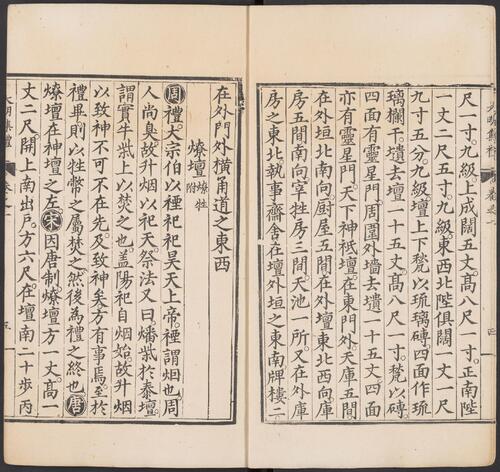 尺一寸。九級上成闊五丈。高八尺一寸。正南陛
一丈二尺五寸。九級東西北陛俱闊一丈一尺
九寸五分。九級壇上下甃以琉璃磚四面作琉
璃欄干壝去壇一十五丈。高八尺一寸。甃以磚。
四面有靈星門。周圍外墻去壝一十五丈四面
亦有靈星門。天下神祇壇在東門外天庫五間
在外垣北南向厨屋五間在外壇東北西向庫
房五間南向宰牲房三間天池一所又在外庫
房之東北執事齋舍在壇外垣之東南牌樓二
在外門外横甬道之東西
燎壇燎牲附
周禮大宗伯以禋祀祀昊天上帝。禋謂烟也。周
人尚臭。故升烟以祀天。祭法又曰燔柴於泰壇。
謂實牛柴上以焚之也。盖陽祀自烟始。故升烟
以致神。不可不在先。及致神矣。方有事焉。至於
禮畢。則以牲幣之屬焚之。然後為禮之終也。唐
燎壇在神壇之左。宋因唐制。燎壇方一丈。高一
丈二尺。開上南出戶。方六尺。在壇南二十步丙